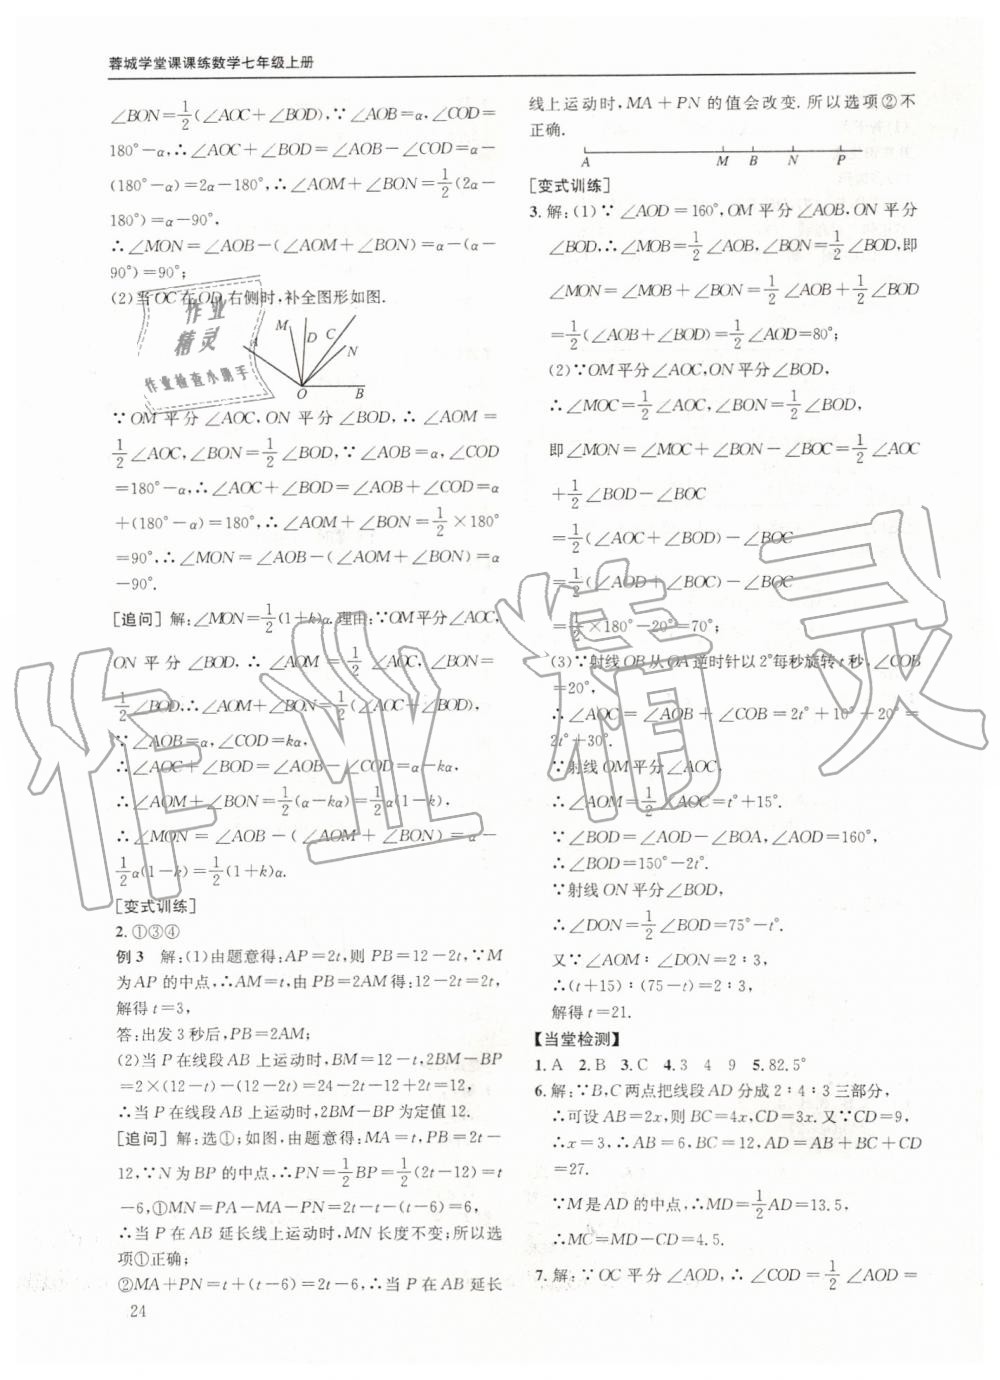 蓉城学堂课课练数学七年级上册
∠BON=1/2(∠AOC+∠BOD),∵∠AOB=α,∠COD=
180°-α,∴∠AOC+∠BOD=∠AOB-∠COD=α-
(180°-α)=2α-180°,∴∠AOM+∠BON=1/2(2α-
180°)=α-90°,
∴∠MON=∠AOB-(∠AOM+∠BON)=α-(α-
90°)=90°;
(2)当OC在OD右侧时,补全图形如图.
M D C N A O B
∵OM平分∠AOC,ON平分∠BOD,∴∠AOM=
1/2∠AOC,∠BON=1/2∠BOD,∵∠AOB=α,∠COD
=180°-α,∴∠AOC+∠BOD=∠AOB+∠COD=α
+(180°-α)=180°,∴∠AOM+∠BON=1/2×180°
=90°,∴∠MON=∠AOB-(∠AOM+∠BON)=α
-90°.
[追问] 解:∠MON=1/2(1+k)α.理由:∵OM平分∠AOC,
ON平分∠BOD,∴∠AOM=1/2∠AOC,∠BON=
1/2∠BOD,∴∠AOM+∠BON=1/2(∠AOC+∠BOD),
∵∠AOB=α,∠COD=kα,
∴∠AOC+∠BOD=∠AOB-∠COD=α-kα,
∴∠AOM+∠BON=1/2(α-kα)=1/2α(1-k).
∴∠MON=∠AOB-(∠AOM+∠BON)=α-
1/2α(1-k)=1/2(1+k)α.
[变式训练]
2.①③④
例3 解:(1)由题意得:AP=2t,则PB=12-2t,∵M
为AP的中点,∴AM=t,由PB=2AM得:12-2t=2t,
解得t=3,
答:出发3秒后,PB=2AM;
(2)当P在线段AB上运动时,BM=12-t,2BM-BP
=2×(12-t)-(12-2t)=24-2t-12+2t=12,
∴当P在线段AB上运动时,2BM-BP为定值12.
[追问] 解:选①;如图,由题意得:MA=t,PB=2t-
12,∵N为BP的中点,∴PN=1/2BP=1/2(2t-12)=t
-6,①MN=PA-MA-PN=2t-t-(t-6)=6,
∴当P在AB延长线上运动时,MN长度不变;所以选
项①正确;
②MA+PN=t+(t-6)=2t-6,∴当P在AB延长
24
线上运动时,MA+PN的值会改变.所以选项②不
正确.
A M B N P
[变式训练]
3.解:(1)∵∠AOD=160°,OM平分∠AOB,ON平分
∠BOD,∴∠MOB=1/2∠AOB,∠BON=1/2∠BOD,即
∠MON=∠MOB+∠BON=1/2∠AOB+1/2∠BOD
=1/2(∠AOB+∠BOD)=1/2∠AOD=80°;
(2)∵OM平分∠AOC,ON平分∠BOD,
∴∠MOC=1/2∠AOC,∠BON=1/2∠BOD,
即∠MON=∠MOC+∠BON-∠BOC=1/2∠AOC
+1/2∠BOD-∠BOC
=1/2(∠AOC+∠BOD)-∠BOC
=1/2(∠AOD+∠BOC)-∠BOC
=1/2×180°-20°=70°;
(3)∵射线OB从OA逆时针以2°每秒旋转t秒,∠COB
=20°,
∴∠AOC=∠AOB+∠COB=2t°+10°+20°=
2t°+30°.
∵射线OM平分∠AOC,
∴∠AOM=1/2∠AOC=t°+15°.
∵∠BOD=∠AOD-∠BOA,∠AOD=160°,
∴∠BOD=150°-2t°.
∵射线ON平分∠BOD,
∴∠DON=1/2∠BOD=75°-t°.
又∵∠AOM∶∠DON=2∶3,
∴(t+15)∶(75-t)=2∶3,
解得t=21.
【当堂检测】
1.A 2.B 3.C 4.3 4 9 5.82.5°
6.解:∵B,C两点把线段AD分成2∶4∶3三部分,
∴可设AB=2x,则BC=4x,CD=3x.又∵CD=9,
∴x=3,∴AB=6,BC=12,AD=AB+BC+CD
=27.
∵M是AD的中点,∴MD=1/2AD=13.5,
∴MC=MD-CD=4.5.
7.解:∵OC平分∠AOD,∴∠COD=1/2∠AOD=
作业
精灵
作业检查小助手
作业精灵